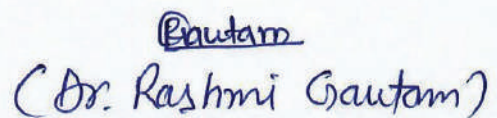 Gautam
(Dr. Rashmi Gautam)